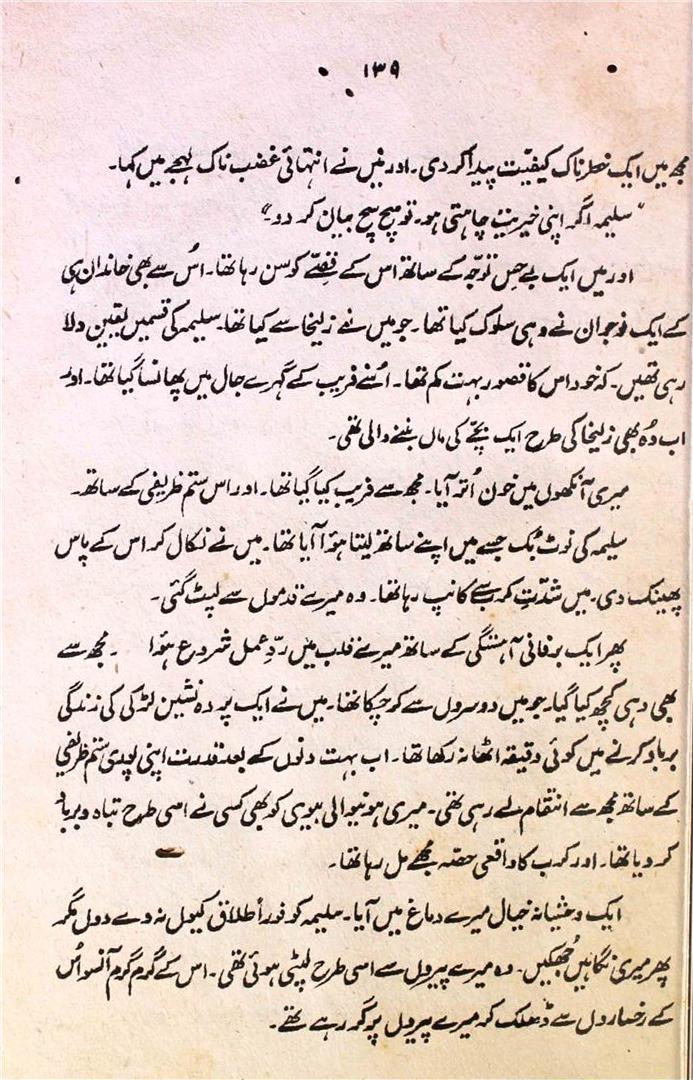 ۱۳۹
مجھ میں ایک خطرناک کیفیّت پیدا کر دی۔ اور میں نے انتہائی غضب ناک لہجے میں کہا۔
"سلیمہ اگر اپنی خیریت چاہتی ہو۔ تو سچ سچ بیان کر دو۔"
اور میں ایک بے حِس توجّہ کے ساتھ اس کے قِصّے کو سن رہا تھا۔ اُس سے بھی خاندان ہی
کے ایک نوجوان نے وہی سلوک کیا تھا۔ جو میں نے زلیخا سے کیا تھا۔ سلیمہ کی قسمیں یقین دلا
رہی تھیں۔ کہ خود اس کا قصور بہت کم تھا۔ اُسنے فریب کے گہرے جال میں پھانسا گیا تھا۔ اور
اب وُہ بھی زلیخا کی طرح ایک بچّے کی ماں بننے والی تھی۔
میری آنکھوں میں خون اُتر آیا۔ مجھ سے فریب کیا گیا تھا۔ اور اس ستم ظریفی کے ساتھ۔
سلیمہ کی نوٹ بُک جسے میں اپنے ساتھ لیتا ہؤا آیا تھا۔ میں نے نکال کر اس کے پاس
پھینک دی۔ میں شدّتِ کرب سے کانپ رہا تھا۔ وہ میرے قدموں سے لپٹ گئی۔
پھر ایک برفانی آہستگی کے ساتھ میرے قلب میں ردِّ عمل شروع ہؤا ۔ مجھ سے
بھی وہی کچھ کیا گیا۔ جو میں دوسروں سے کر چکا تھا۔ میں نے ایک پردہ نشین لڑکی کی زندگی
برباد کرنے میں کوئی دقیقہ اٹھا نہ رکھا تھا۔ اب بہت دنوں کے بعد قدرت اپنی پوری ستم ظریفی
کے ساتھ مجھ سے انتقام لے رہی تھی۔ میری ہونیوالی بیوی کو بھی کسی نے اسی طرح تباہ و برباد
کر دیا تھا۔ اور کرب کا واقعی حصّہ مجھے مل رہا تھا۔
ایک وحشیانہ خیال میرے دماغ میں آیا۔ سلیمہ کو فوراً طلاق کیوں نہ دے دوں مگر
پھر میری نگاہیں جُھکیں۔ وہ میرے پیروں سے اسی طرح لپٹی ہوئی تھی۔ اس کے گرم گرم آنسو اُس
کے رخساروں سے ڈھلک کر میرے پیروں پر گر رہے تھے۔